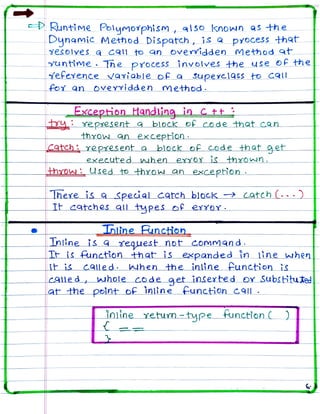 ⇒ Runtime Polymorphism, also known as the
Dynamic Method Dispatch, is a process that
resolves a call to an overridden method at
runtime. The process involves the use of the
reference variable of a superclass to call
for an overridden method.
Exception Handling in C++ :
try: represent a block of code that can
throw an exception.
Catch: represent a block of code that get
executed when error is thrown.
throw: Used to throw an exception.
There is a special catch block → catch (...)
It catches all types of error.
• Inline Function
Inline is a request not command.
It is function that is expanded in line when
It is called. When the inline function is
called, whole code get inserted or substituted
at the point of inline function call.
inline return-type function ( )
{ ==
}